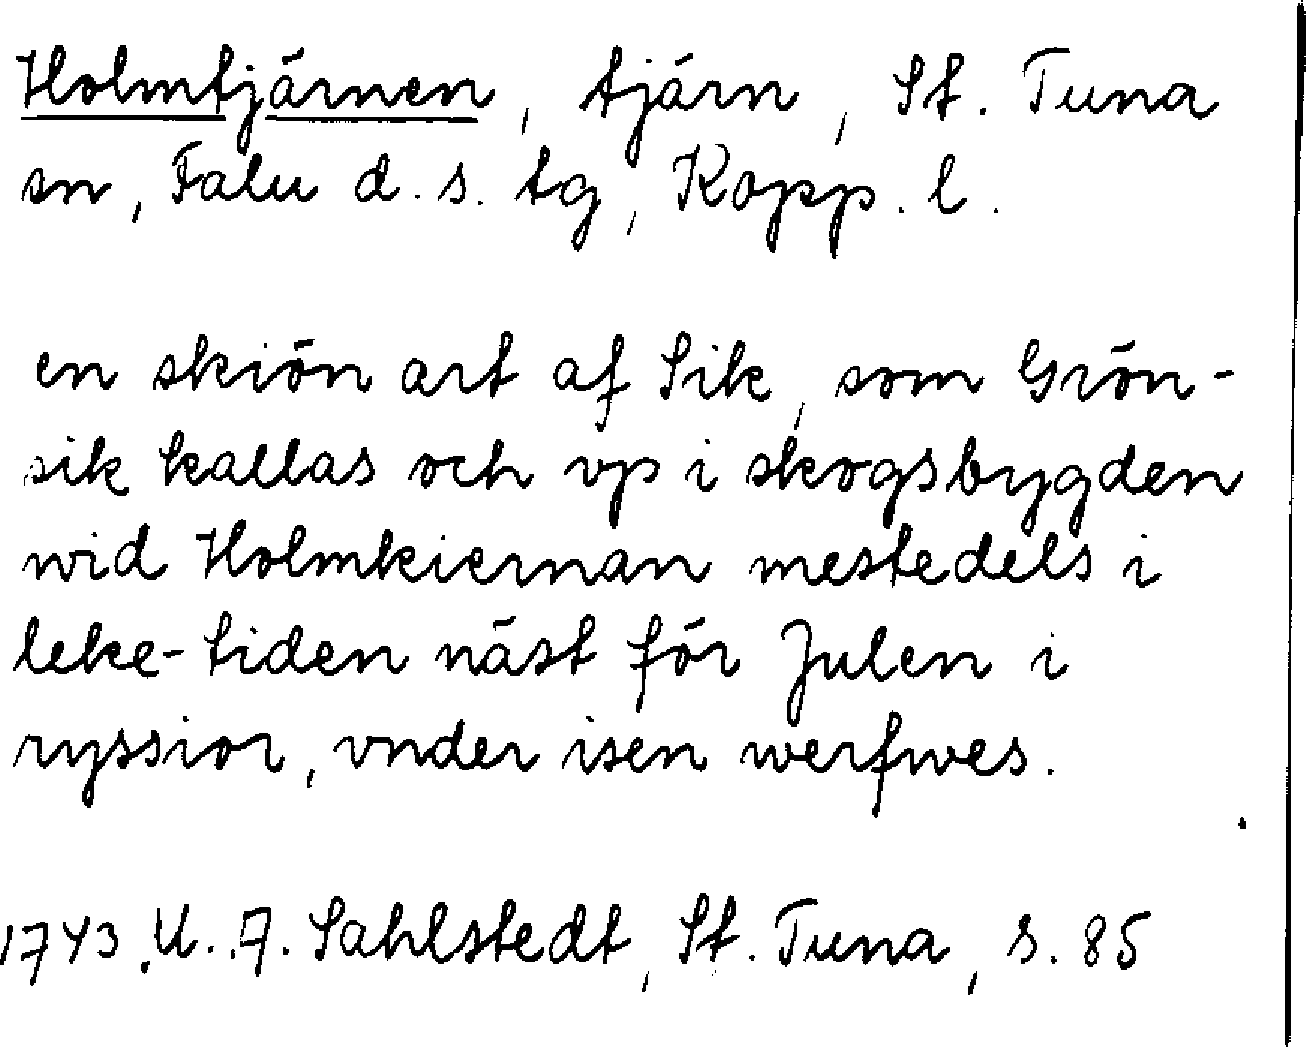 Holmtjärnen, tjärn, St. Tuna
sn, Falu d. s. tg, Kopp. l.
en skiön art af Sik, som Grön-
sik kallas och vp i skogsbygden
wid Holmkiernan mestedels i
leke-tiden näst för Julen i
ryssior, vnder isen werfwes.
1743. U. A. Sahlstedt, St. Tuna, s. 85